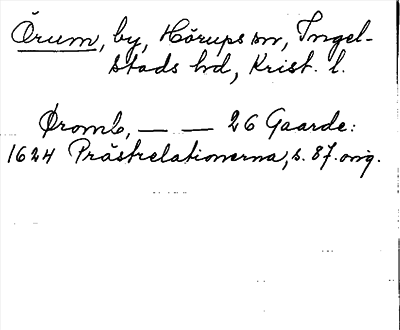 Örum, by, Hörups sn, Ingel-
stads hd, Krist. l.
Øromb, — — 26 Gaarde:
1624 Prästrelationerna, s. 87. orig.